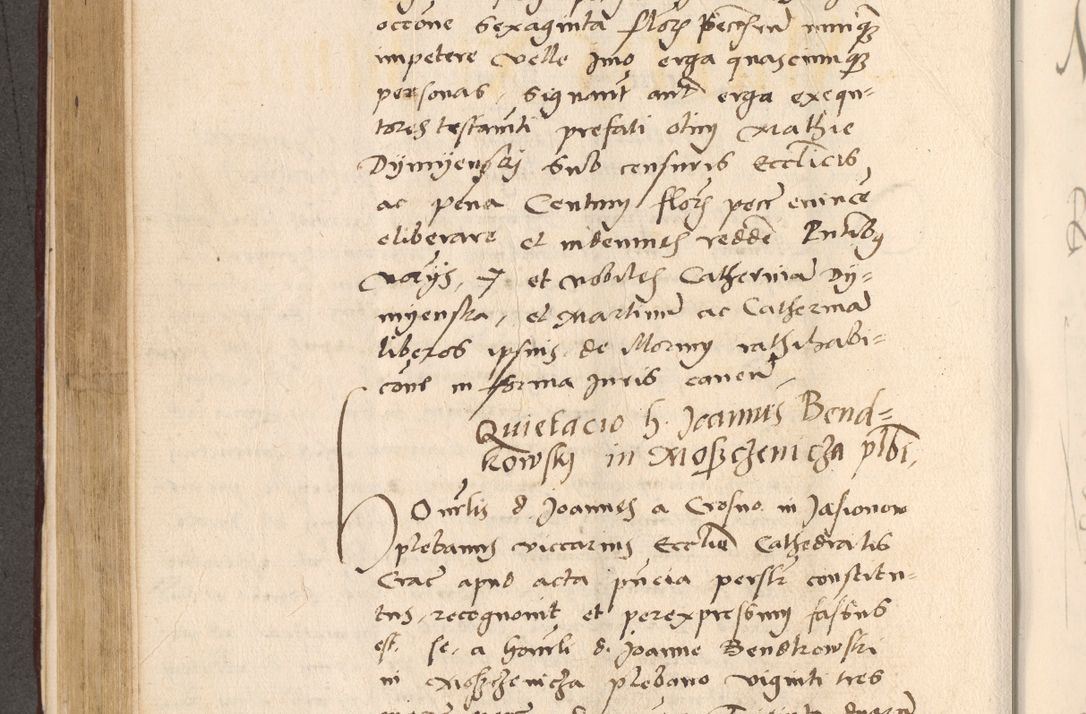 occone Sexaginta flor pecuniar nunq
impetere velle Imo erga quascunq
personas, signant aut erga exequ-
tores testamti prefati olim Mathie
Dymyensky sub censuris Ecclicis
ac pena Centum flor pecc evince
eliberare et indemnes redde Pntibq
et nobiles Catherina Dy=
myenska, et Martinu ac Catherina
liberos ipsius de Morimy rathihabi=
cone in forma Juris caven
Quietacio h. Joannis Bend=
kowsky in Moszczenicza plbi.
Honrlis d Joannes a Crosno in Jasionow
plebanus viccarius Ecclie Cathedralis
Crac apud acta pncia persr constitu-
tus, recognovit et perexpressum fassus
est. se a honrli d. Joanne Bendkowski
in Moszczenicza plebano viginti tres